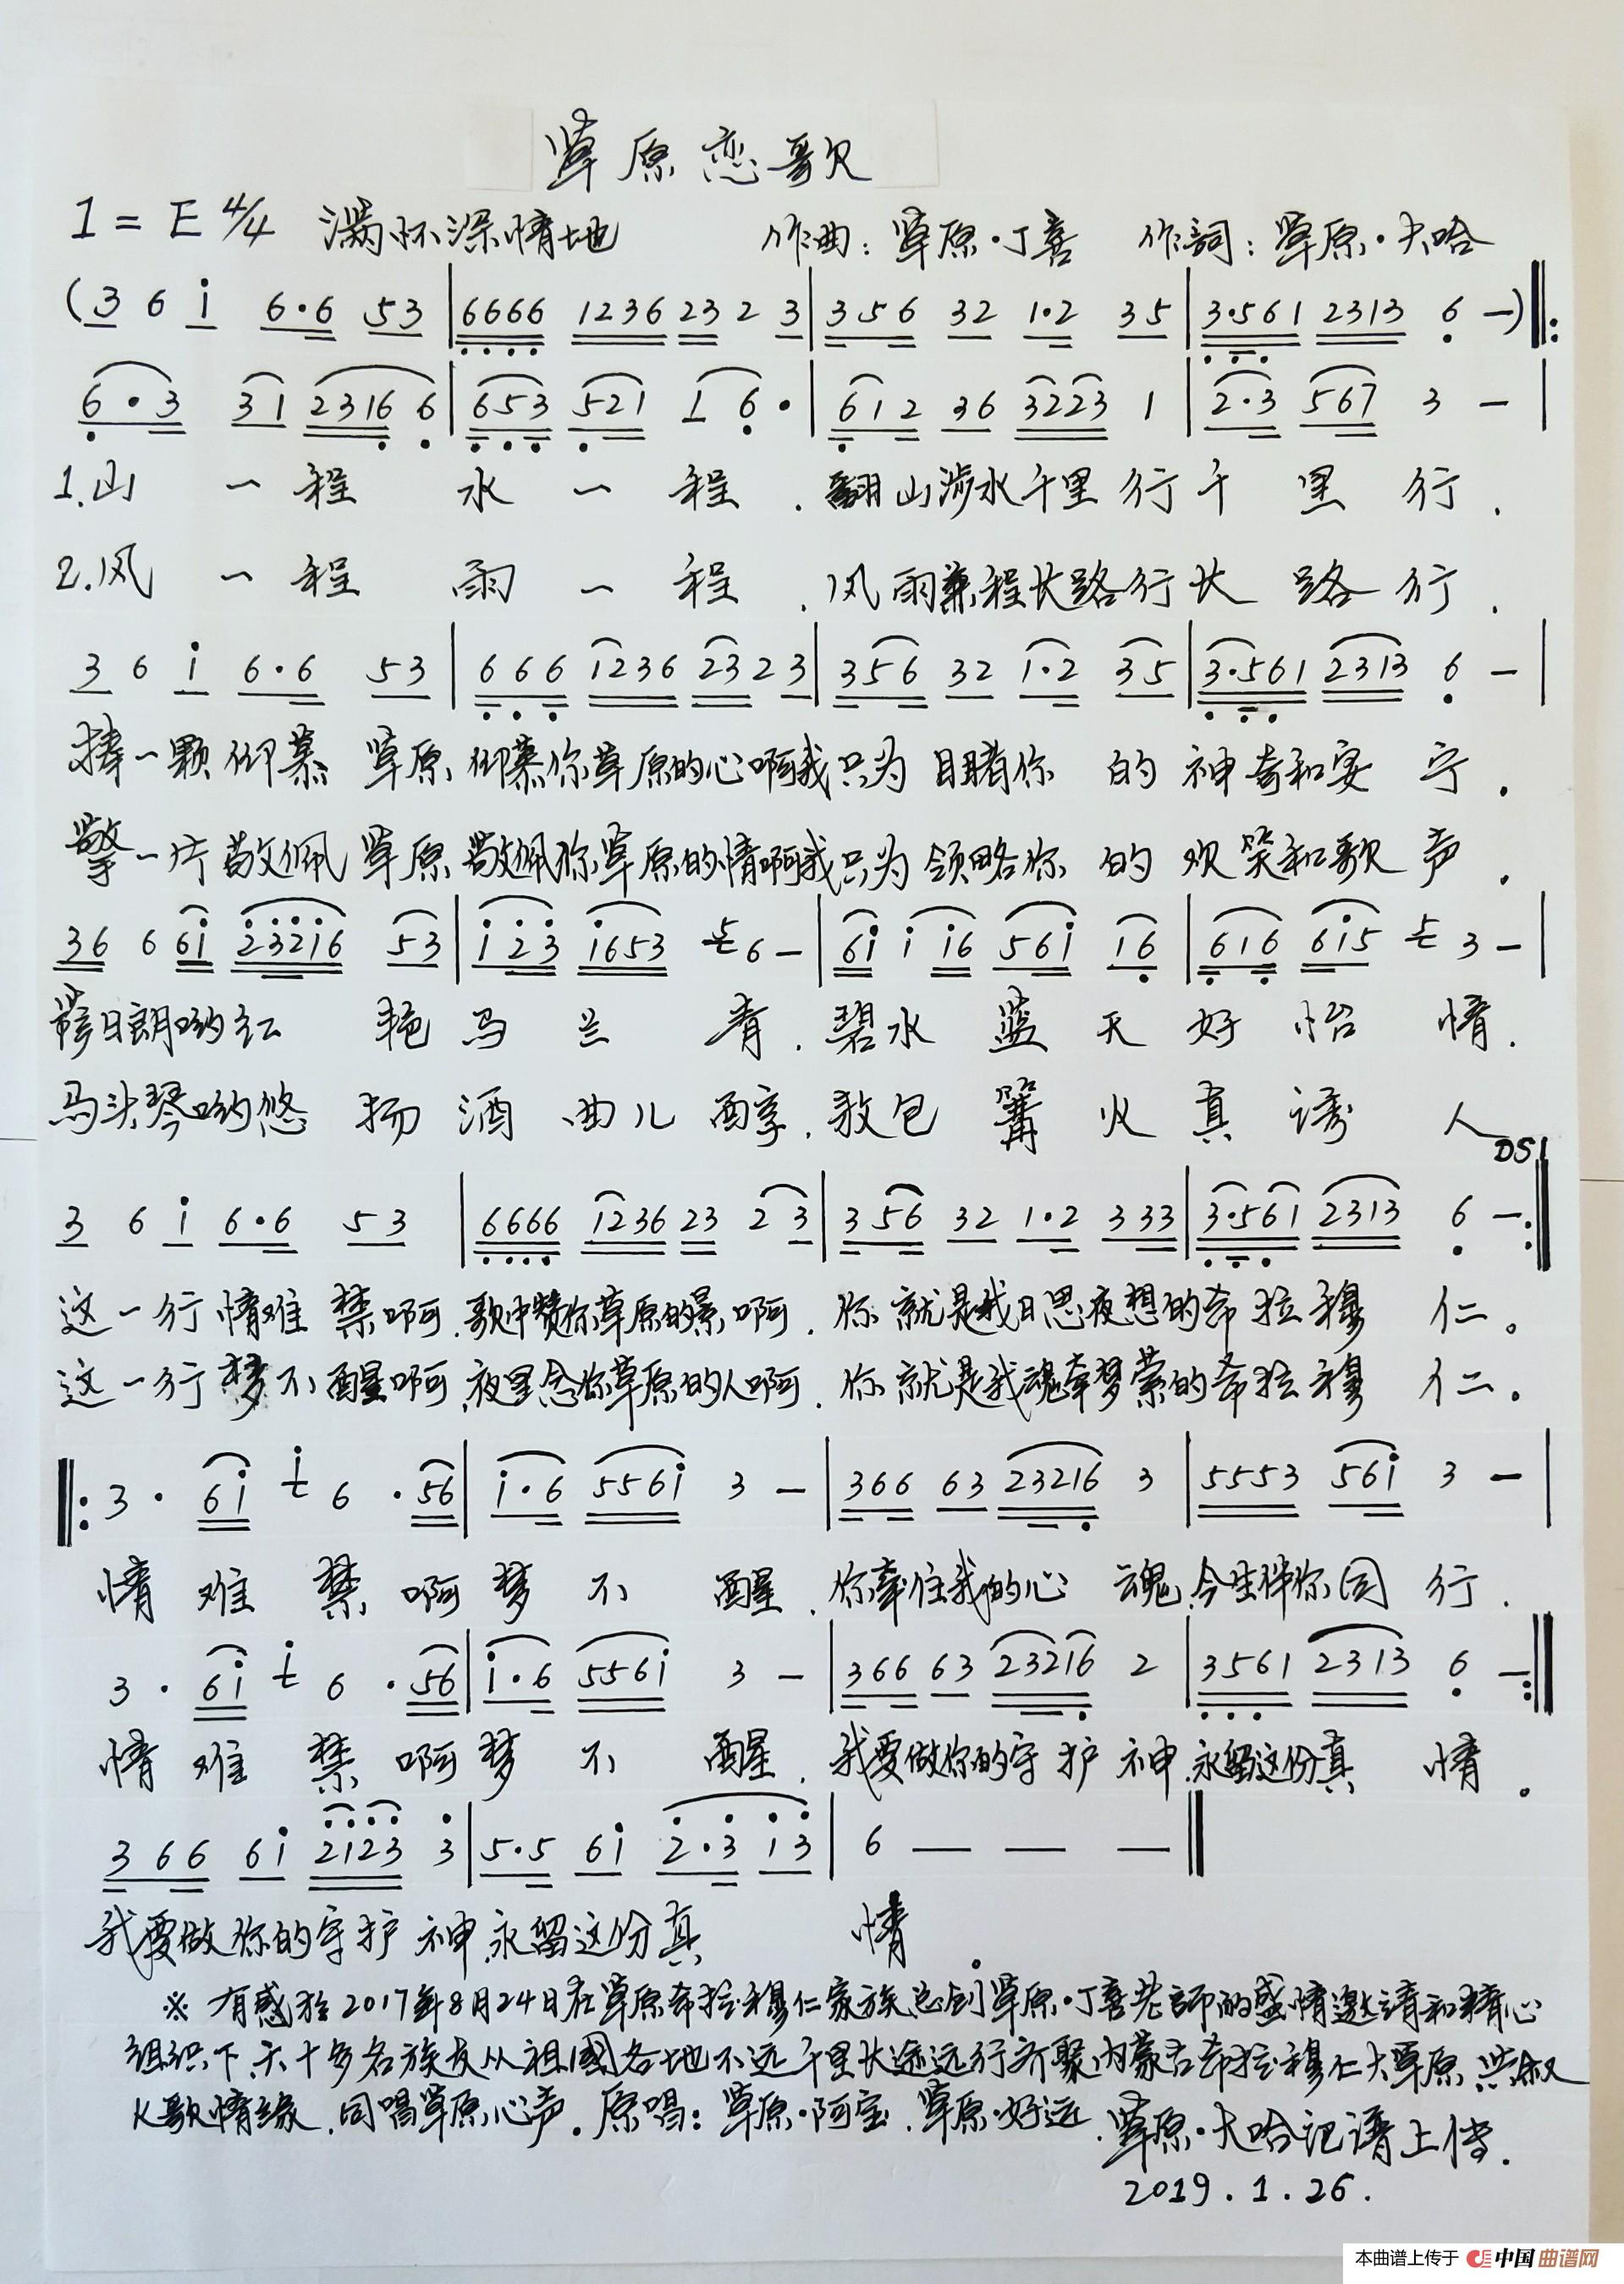 草原恋歌
1=E 4/4 满怀深情地 作曲：草原·丁喜 作詞：草原·大哈
(3 6 i 6·6 53 | 6666 1236 23 2 3 | 356 32 1·2 35 | 3·561 2313 6 —) ‖:
6·3 31 2316 6 | 653 521 1 6· | 612 36 3223 1 | 2·3 567 3 — |
1.山一程水一程.翻山涉水千里行千里行.
2.风一程雨一程.风雨兼程长路行长路行.
3 6 i 6·6 53 | 666 1236 23 2 3 | 356 32 1·2 35 | 3·561 2313 6 — |
捧一颗仰慕草原,仰慕你草原的心啊我只为目睹你的神奇和安宁.
擎一片敬佩草原,敬佩你草原的情啊我只为领略你的欢笑和歌声.
36 6 6i 23216 53 | i23 i653 6 — | 6i i i6 56i 16 | 616 6i5 3 — |
日朗哟红艳马兰青.碧水蓝天好怡情.
马头琴哟悠扬酒曲儿醇.敖包篝火真诱人
DS1
3 6 i 6·6 53 | 6666 1236 23 2 3 | 356 32 1·2 333 | 3·561 2313 6 — :‖
这一行情难禁啊.歌中赞你草原的景啊.你就是我日思夜想的希拉穆仁。
这一行梦不醒啊,夜里念你草原的人啊.你就是我魂牵梦萦的希拉穆仁。
‖: 3· 6i 6 ·56 | i·6 556i 3 — | 366 63 23216 3 | 5553 56i 3 — |
情难禁啊梦不醒.你牵住我的心魂.今生伴你同行.
3· 6i 6 ·56 | i·6 556i 3 — | 366 63 23216 2 | 3561 2313 6 — :‖
情难禁啊梦不醒.我要做你的守护神.永留这份真情。
366 6i 2123 3 | 5·5 6i 2·3 i3 | 6 — — — ‖
我要做你的守护神.永留这份真情。
※ 有感於2017年8月24日在草原希拉穆仁家族总创草原·丁喜老師的盛情邀请和精心
组织下,六十多名族友从祖國各地不远千里长途远行齐聚内蒙古希拉穆仁大草原,共叙
K歌情缘.同唱草原心声。原唱：草原·阿宝.草原·好远.草原·大哈记谱上传.
2019.1.26.
本曲谱上传于 中国曲谱网